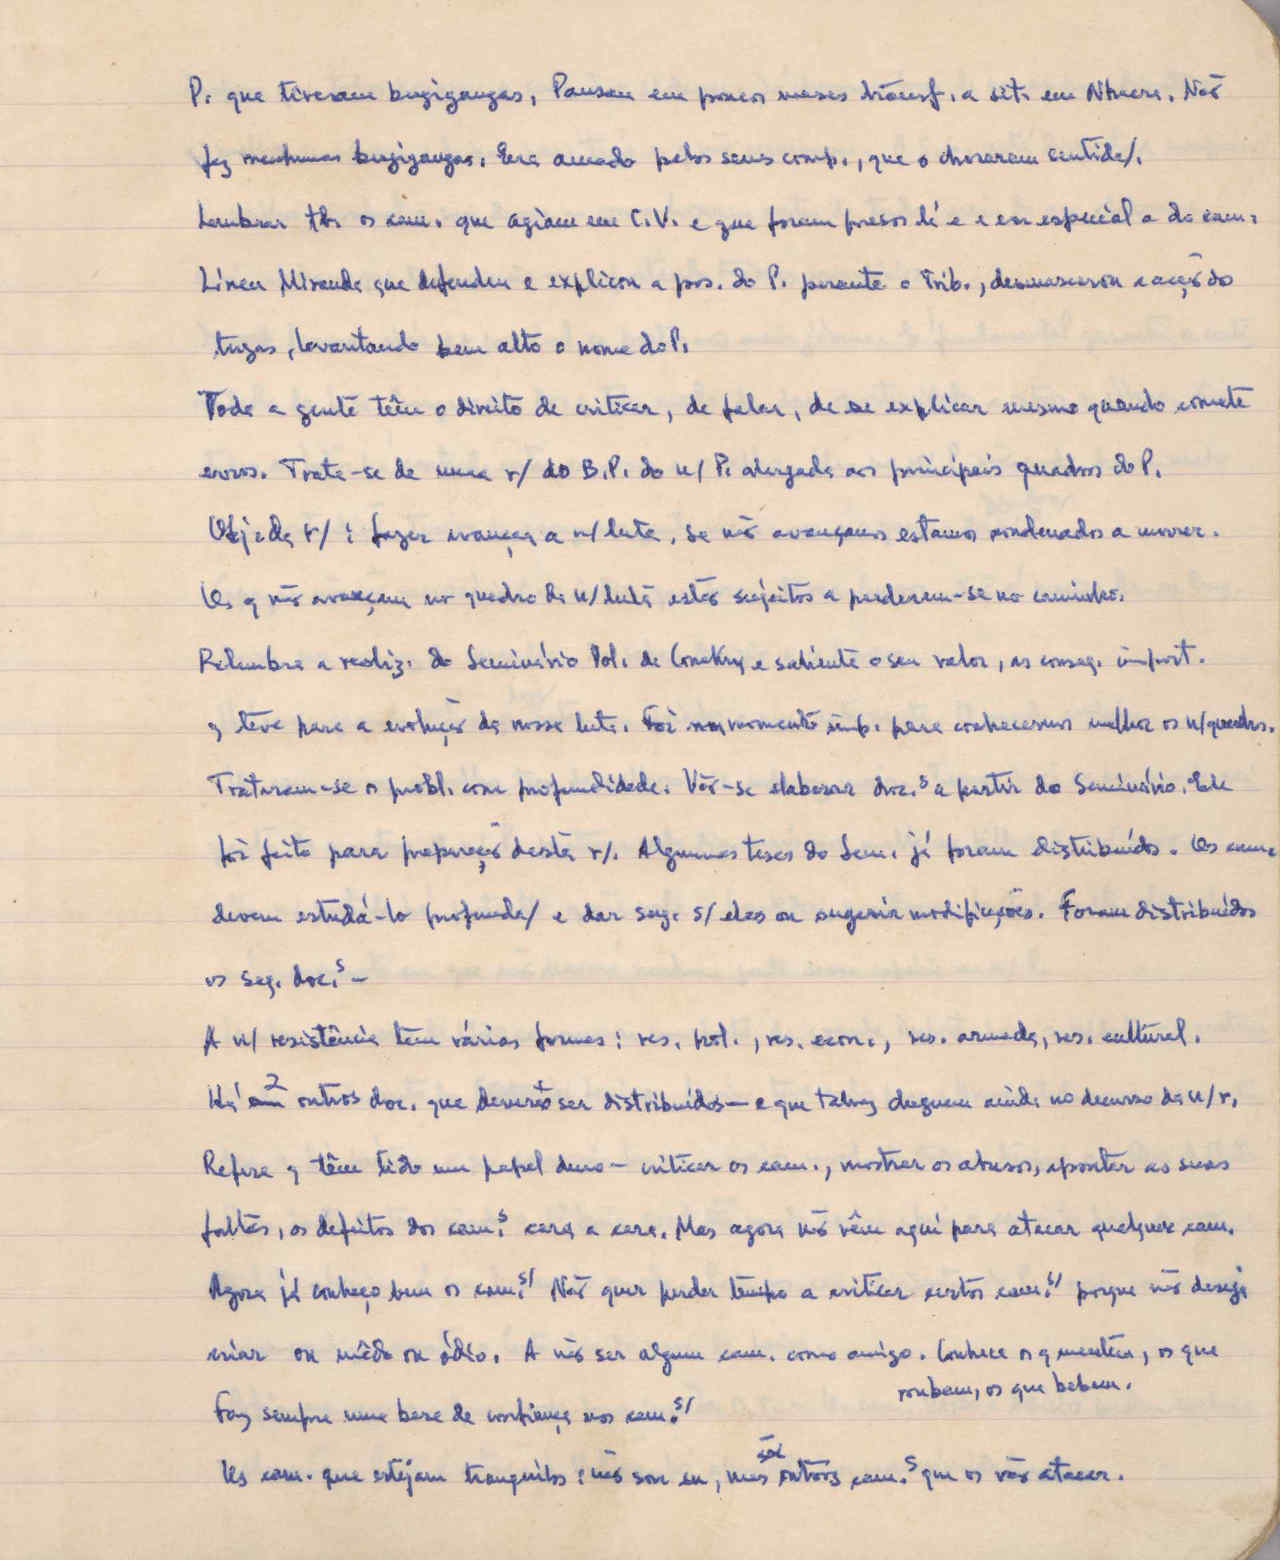 P. que tiveram bugigangas, Pansau em poucos meses transf. a sit. em N'hacra. Não
fez nenhumas bugigangas. Era amado pelos seus comp., que o choraram sentida/.
Lembrar tb. os cam. que agiam em C.V. e que foram presos lá e em especial a do cam.
Lineu Miranda que defendeu e explicou a pos. do P. perante o Trib., desmascarou a acção do
tugas, levantando bem alto o nome do P.
Toda a gente têm o direito de criticar, de falar, de se explicar mesmo quando comete
erros. Trata-se de uma r/ do B.P. do n/ P. alargada aos principais quadros do P.
Obj. da r/: fazer avançar a n/ luta, se não avançamos estamos condenados a morrer.
Os q não avançam no quadro da n/ luta estão sujeitos a perderem-se no caminho.
Relembra a realiz. do Seminário Pol. de Conakry e saliente o seu valor, as conseq. import.
q teve para a evolução da nossa luta. Foi um momento imp. para conhecermos melhor os n/ quadros.
Trataram-se o probl. com profundidade. Vão-se elaborar doc.s a partir do Seminário. Ele
foi feito para preparação desta r/. Algumas teses do Sem. já foram distribuídos. Os cam.
devem estudá-lo profunda/ e dar sug. s/ eles ou sugerir modificações. Foram distribuídos
os seg. doc.s -
A n/ resistência tem várias formas: res. pol., res. econ., res. armada, res. cultural.
Há 2 outros doc. que deverão ser distribuídos - e que talvez cheguem ainda no decurso da n/ r.
Refere q têm tido um papel duro - criticar os cam., mostrar os abusos, apontar as suas
faltas, os defeitos dos cam.s cara a cara. Mas agora não vêm aqui para atacar qualquer cam.
Agora já conheço bem os cam.s/ Não quer perder tempo a criticar certos cam.s/ porque não deseja
criar ou mêdo ou ódio. A não ser algum cam. como amigo. Conhece os q mentem, os que
roubam, os que bebem.
Faz sempre uma base de confiança nos cam.s/
Os cam. que estejam tranquilos: não sou eu, mas são outros cam.s que os vão atacar.